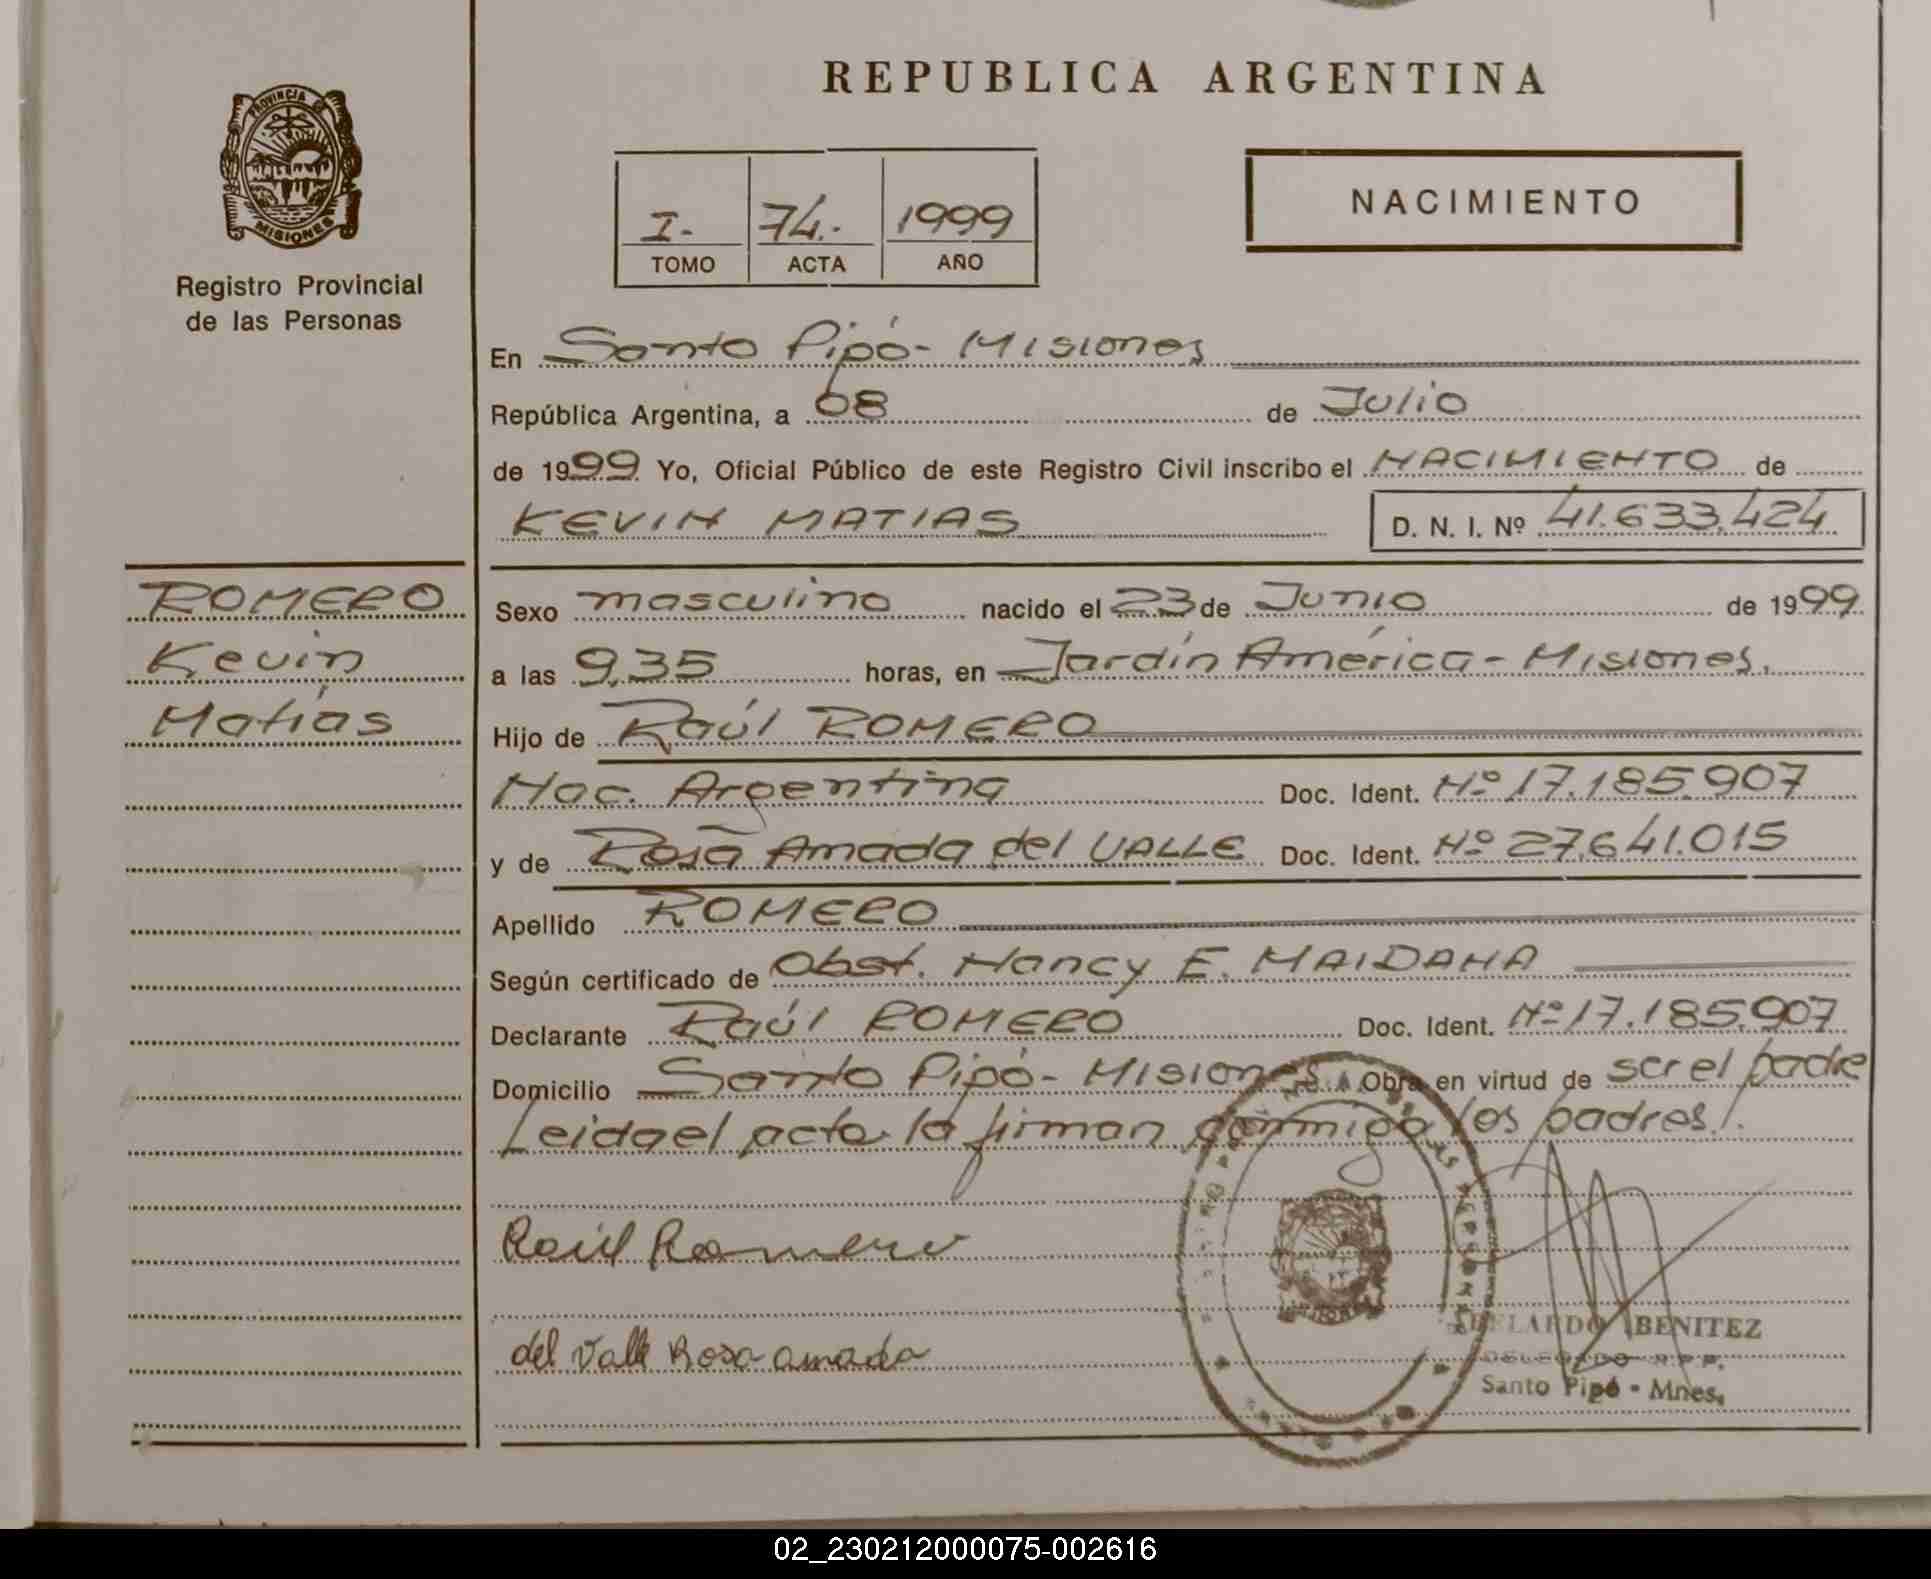 REPUBLICA ARGENTINA
PROVINCIA DE
MISIONES
Registro Provincial
de las Personas
I- 74.- 1999
TOMO ACTA AÑO
NACIMIENTO
En Santo Pipó - Misiones
República Argentina, a 08 de Julio
de 1999 Yo, Oficial Público de este Registro Civil inscribo el NACIMIENTO de
KEVIN MATIAS D. N. I. Nº 41.633.424
ROMERO
Kevin
Matías
Sexo masculino nacido el 23 de Junio de 1999
a las 9,35 horas, en Jardín América - Misiones.
Hijo de Raúl ROMERO
Nac. Argentina Doc. Ident. Nº 17.185.907
y de Rosa Amada del VALLE Doc. Ident. Nº 27.641.015
Apellido ROMERO
Según certificado de Obst. Nancy E. MAIDANA
Declarante Raúl ROMERO Doc. Ident. Nº 17.185.907
Domicilio Santo Pipó - Misiones Obra en virtud de ser el padre
Leida el acta la firman conmigo los padres./.
Raúl Romero
del Valle Rosa amada
ABELARDO BENITEZ
DELEGADO R.P.P.
Santo Pipó - Mnes.
02_230212000075-002616